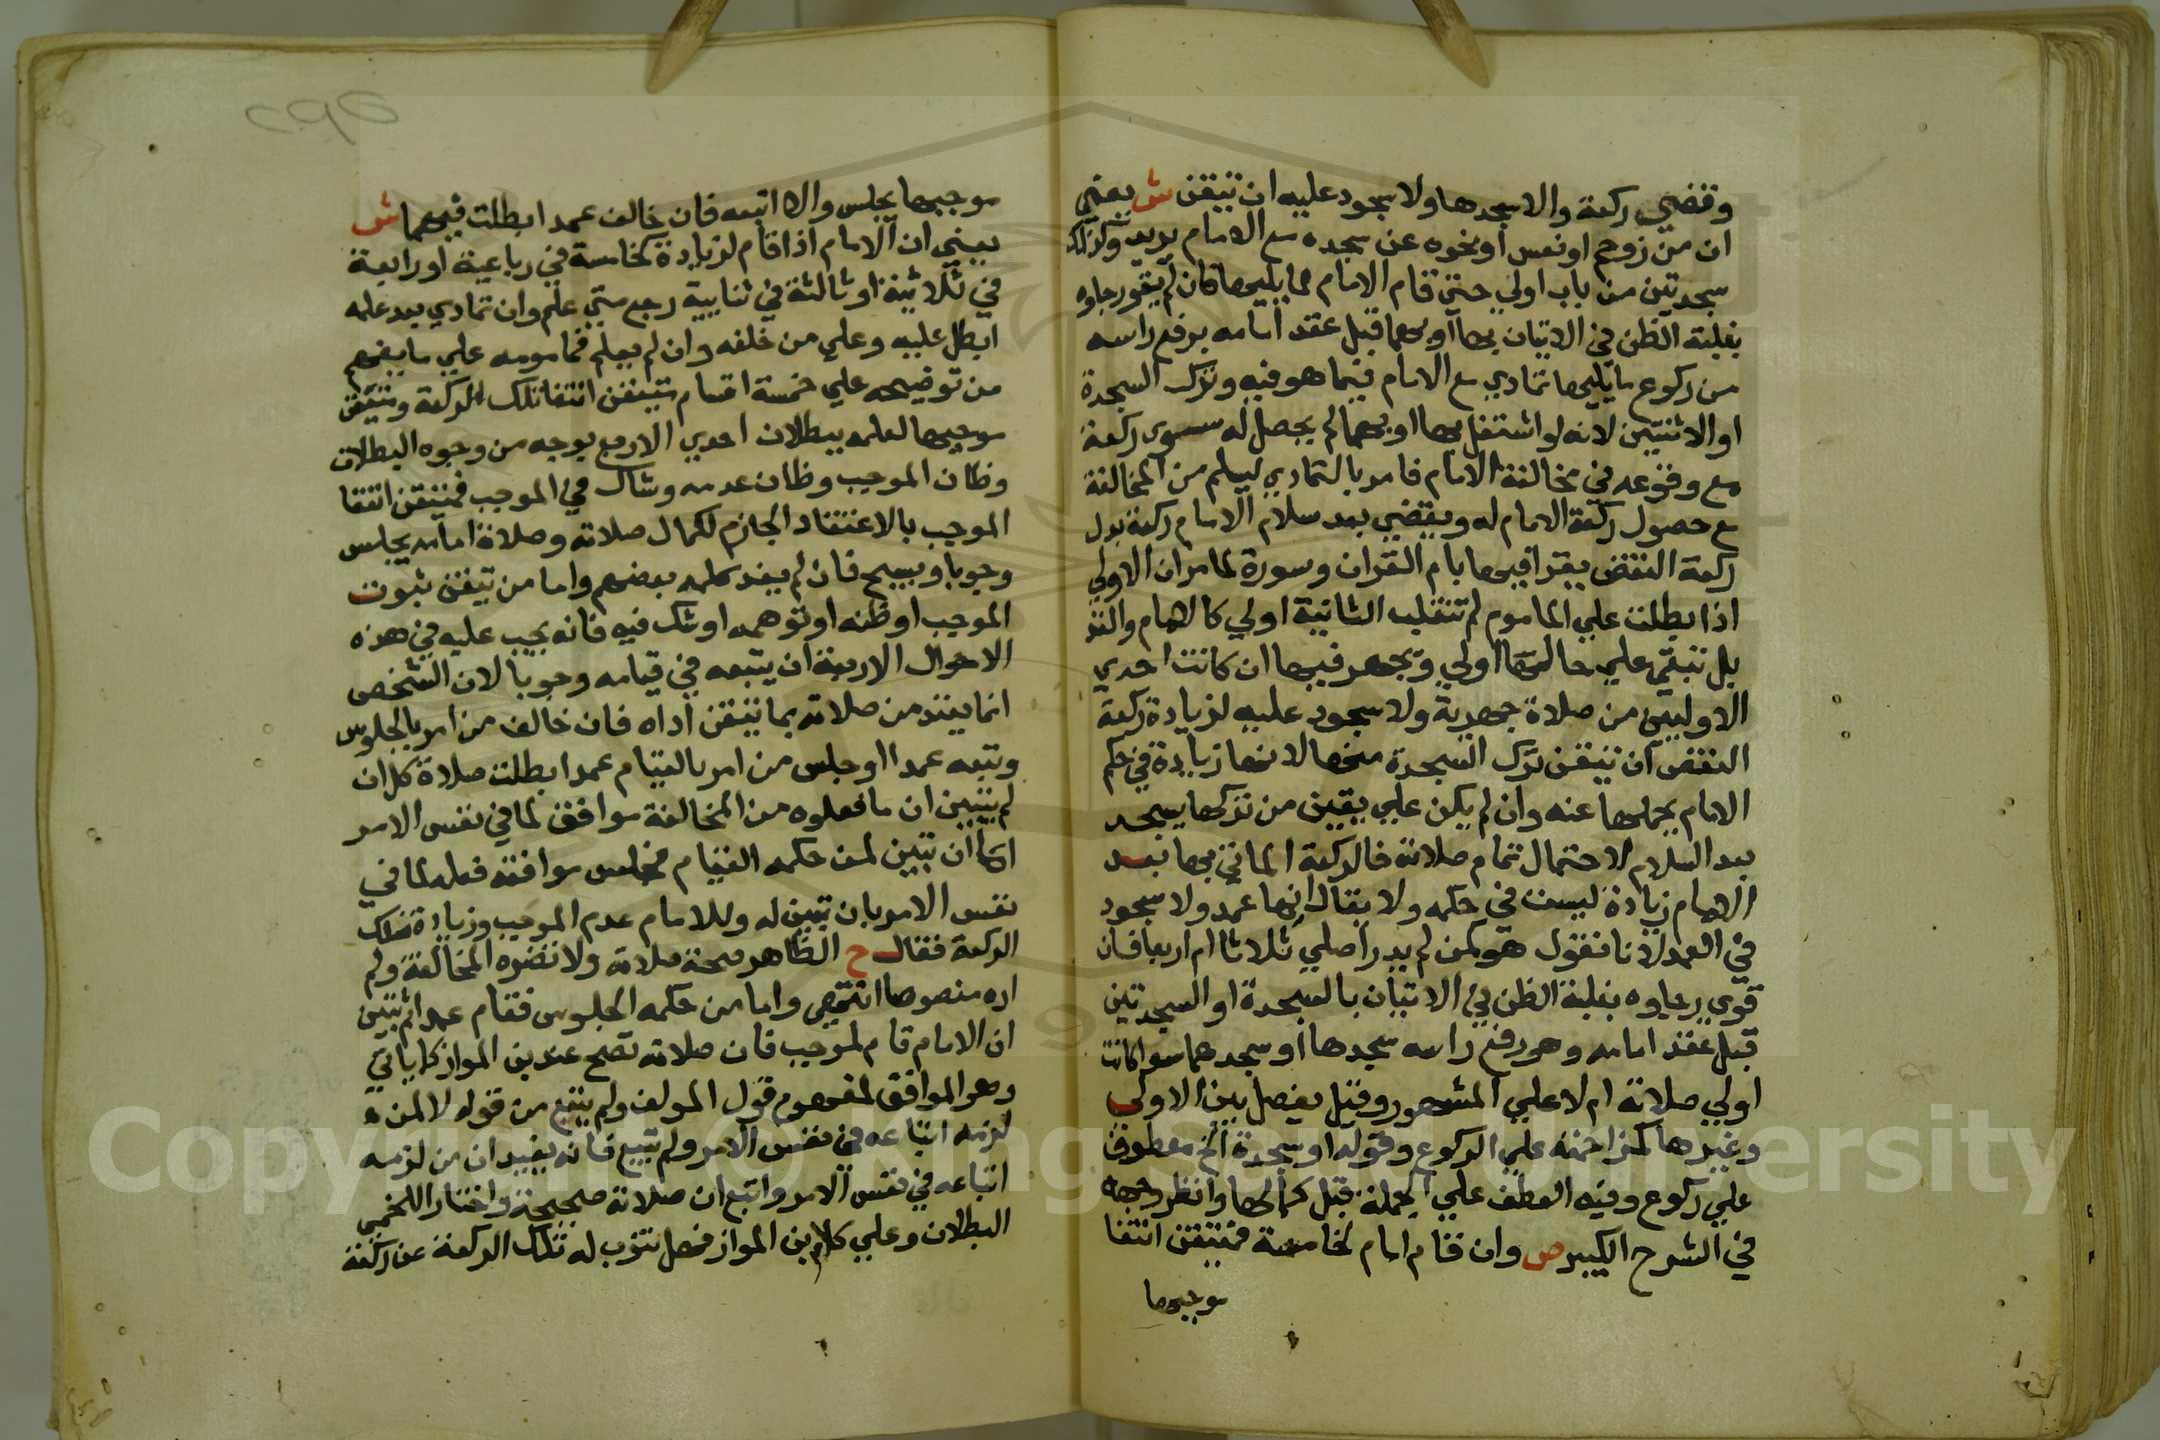 وقضي ركعة والا سجدها ولا سجود عليه ان تيقن ش يعني
ان من زوحم او نعس او نحوه عن سجدة مع الامام يريد وكذلك
سجدتين من باب اولي حتي قام الامام لما يليها فان لم يقو رجاوه
بغلبة الظن في الاتيان بها او بهما قبل عقد امامه برفع راسه
من ركوع ما يليها تمادي مع الامام فيما هو فيه وترك السجدة
او الاثنتين لانه لو اشتغل بها او بهما لم يحصل له سوي ركعة
مع وقوعه في مخالفة الامام فامر بالتمادي ليسلم من المخالفة
مع حصول ركعة الامام له ويقضي بعد سلام الامام ركعة بدل
ركعة النقض يقرا فيها بام القران وسورة لما مر ان الاولي
اذا بطلت علي الماموم لم تنقلب الثانية اولي كالامام والفذ
بل تبقي علي حالها اولي ويجهر فيها ان كانت احدي
الاوليين من صلاة جهرية ولا سجود عليه لزيادة ركعة
النقض ان تيقن ترك السجدة منها لانها زيادة في حكم
الامام يحملها عنه وان لم يكن علي يقين من تركها يسجد
بعد السلام لاحتمال تمام صلاته فالركعة الماتي بها بعد
الامام زيادة ليست في حكمه ولا يقال انها عمد ولا سجود
في العمد لانا نقول هو كمن لم يدر اصلي ثلاثا ام اربعا فان
قوي رجاوه بغلبة الظن في الاتيان بالسجدة او السجدتين
قبل عقد امامه وهو رفع راسه سجدها او سجدهما سوا كانت
اولي صلاته ام لا علي المشهور وقيل يفصل بين الاولي
وغيرها كمزاحمة علي الركوع وقوله او سجدة الخ معطوف
علي ركوع وفيه العطف علي الجملة قبل كمالها وانظر وجهه
في الشرح الكبير ص وان قام امام لخامسة فمتيقن انتفا
موجبها
موجبها يجلس والا اتبعه فان خالف عمدا بطلت فيهما ش
يعني ان الامام اذا قام لزيادة كخامسة في رباعية او رابعة
في ثلاثية او ثالثة في ثنايية رجع متي علم وان تمادي بعد علمه
ابطل عليه وعلي من خلفه وان لم يعلم فمامومه علي ما يفهم
من توضيحه علي خمسة اقسام متيقن انتفا تلك الركعة ومتيقن
موجبها لعلمه ببطلان احدي الاربع بوجه من وجوه البطلان
وظان الموجب وظان عدمه وشاك في الموجب فمتيقن انتفا
الموجب بالاعتقاد الجازم لكمال صلاته وصلاة امامه يجلس
وجوبا ويسبح فان لم يفد كلمه بعضهم واما من تيقن ثبوت
الموجب او ظنه او توهمه او شك فيه فانه يجب عليه في هذه
الاحوال الاربعة ان يتبعه في قيامه وجوبا لان الشخص
انما يعتد من صلاته بما تيقن اداه فان خالف من امر بالجلوس
وتبعه عمدا او جلس من امر بالقيام عمدا بطلت صلاة كل ان
لم يتبين ان ما فعلوه من المخالفة موافق لما في نفس الامر
اما ان تبين لمن حكمه القيام فجلس موافقة فعله لما في
نفس الامر بان تبين له وللامام عدم الموجب وزيادة تلك
الركعة فقال ح الظاهر صحة صلاته ولا تضره المخالفة ولم
اره منصوصا انتهي واما من حكمه الجلوس فقام عمدا ثم تبين
ان الامام قام لموجب فان صلاته تصح عند بن المواز كما ياتي
وهو الموافق لمفهوم قول المولف ولم يتبع من قوله لا لمن
لزمه اتباعه في نفس الامر ولم يتبع فانه يفيد ان من لزمه
اتباعه في نفس الامر واتبع ان صلاته صحيحة واختار اللخمي
البطلان وعلي كلام بن المواز فهل تنوب له تلك الركعة عن ركعة